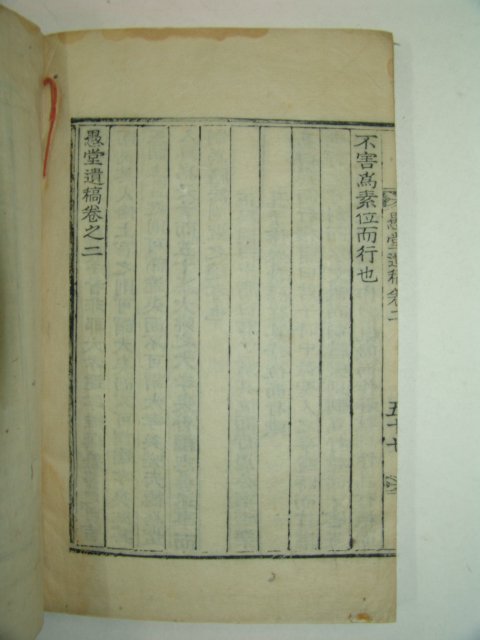 愚堂遺稿卷二
五十七
不害為素位而行也
愚堂遺稿卷之二